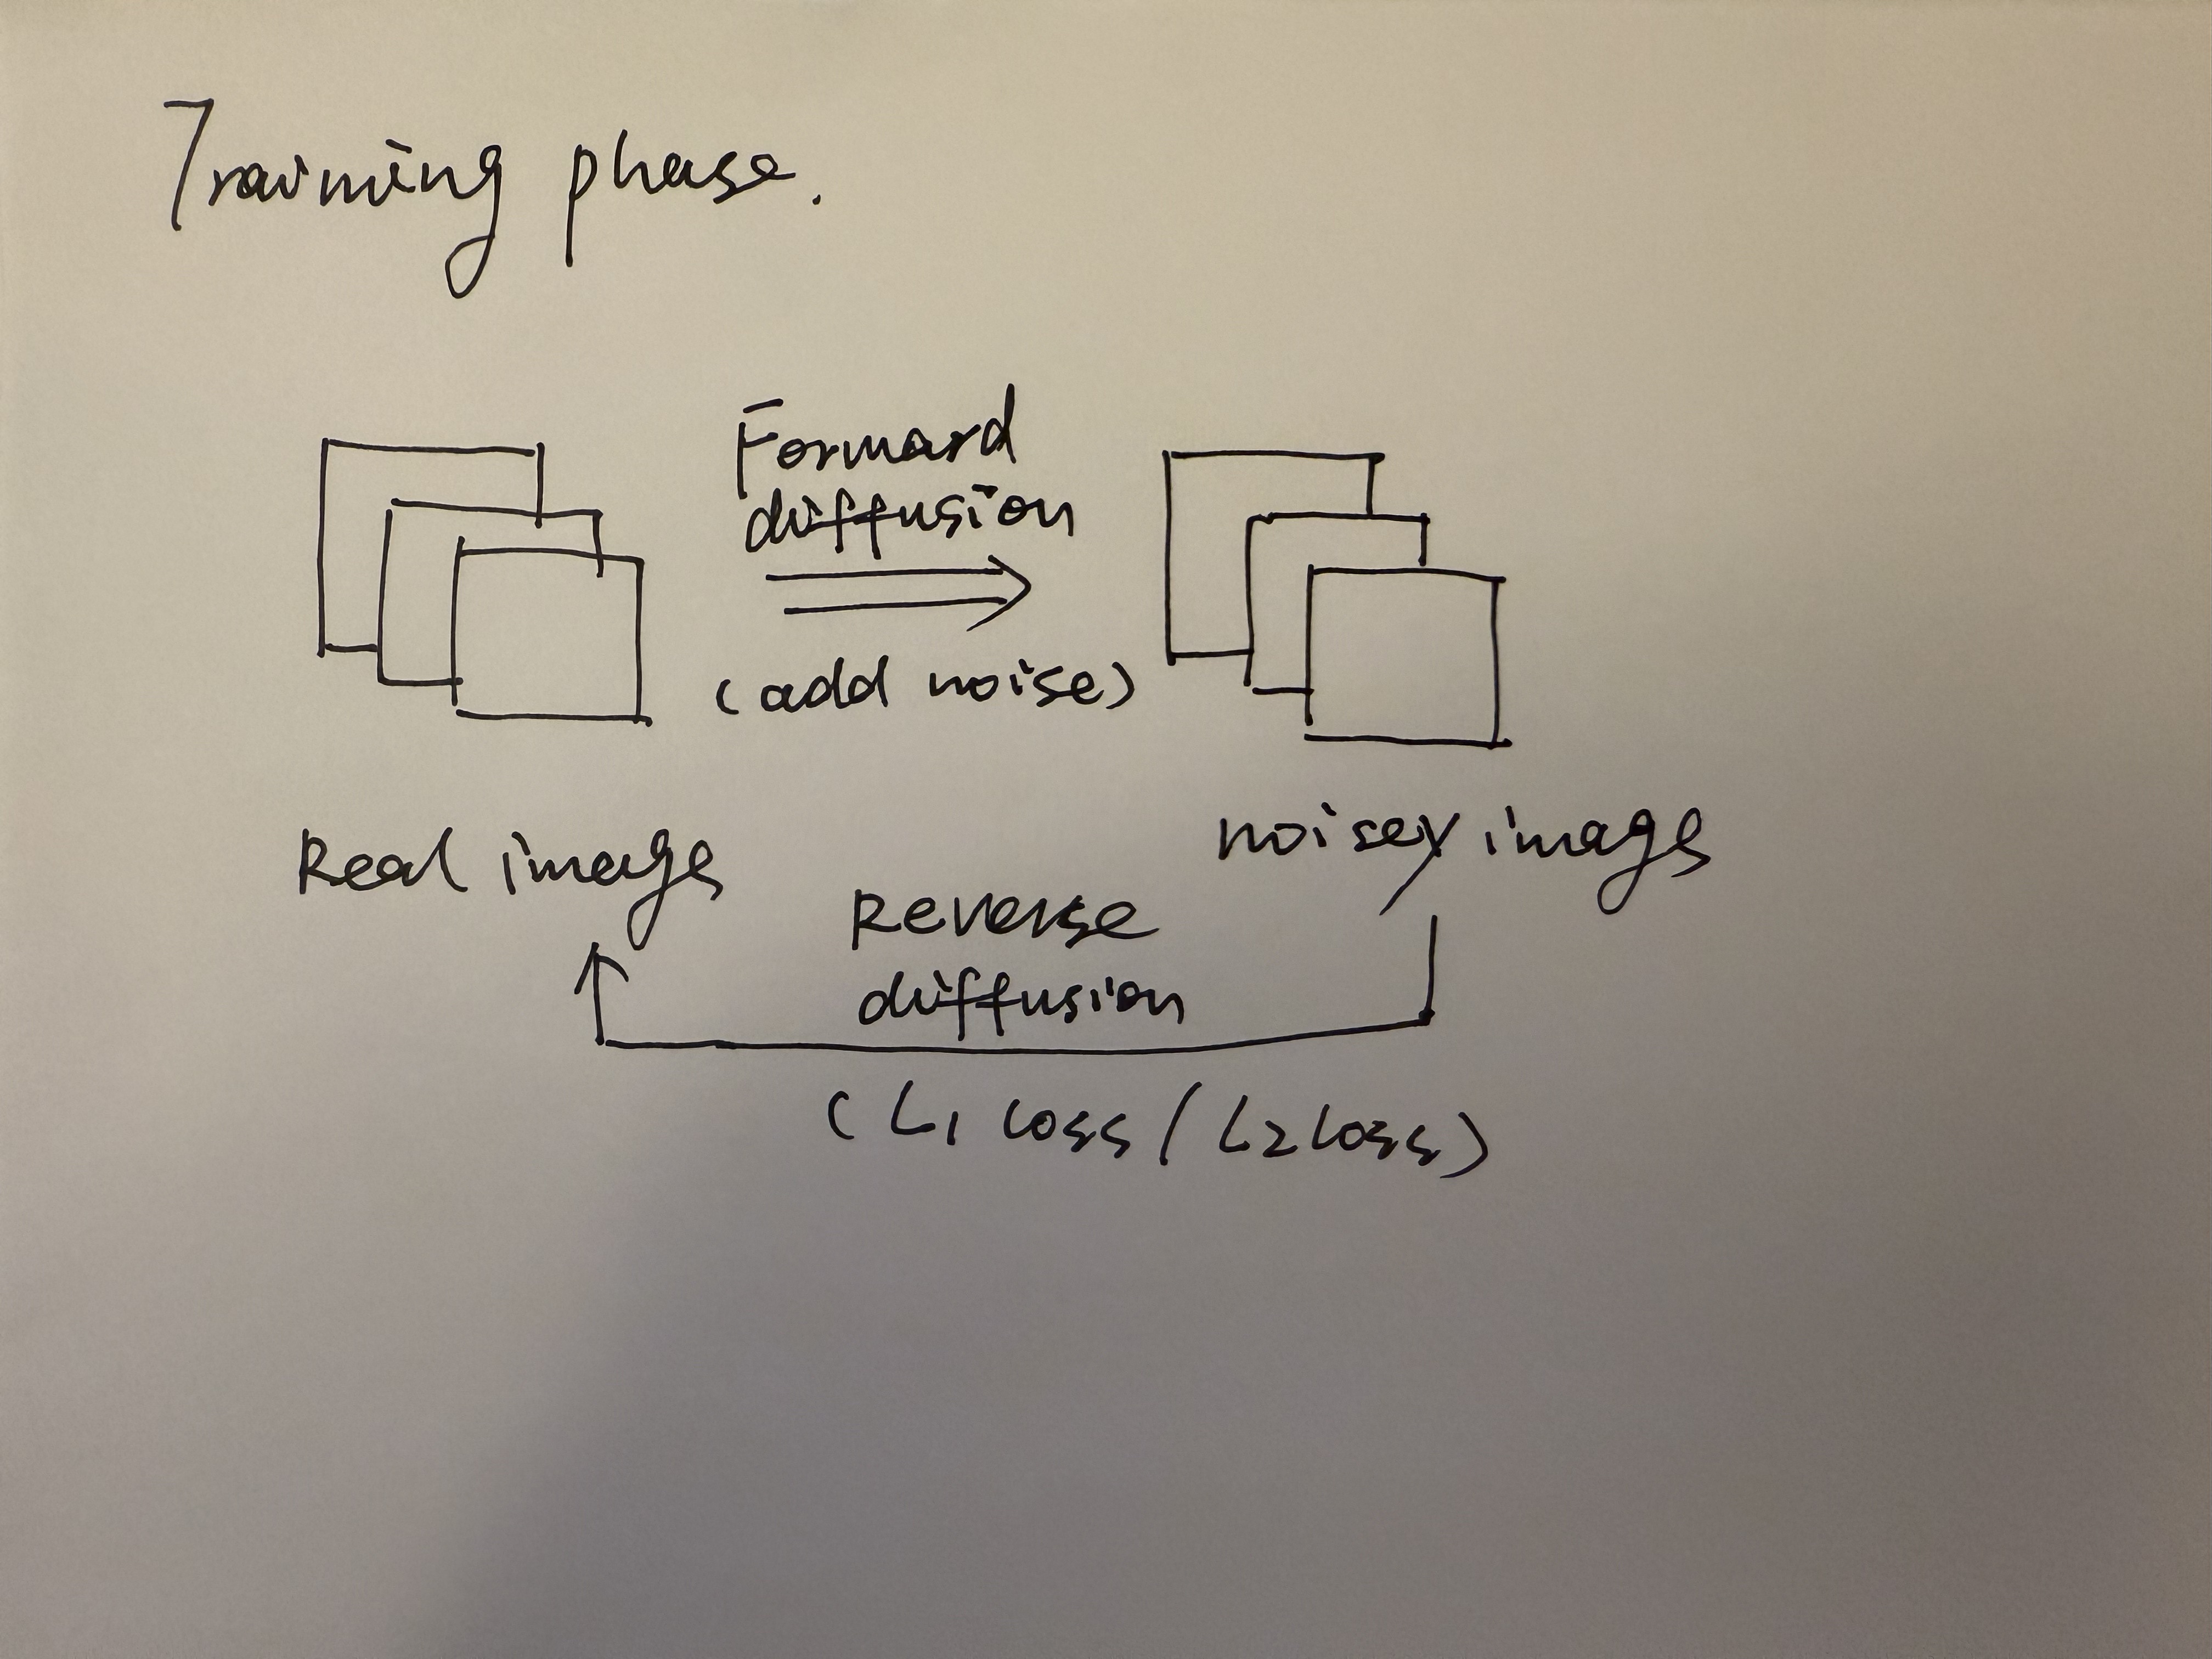 Training phase.
Forward
diffusion
(add noise)
Real images
noisey images
Reverse
diffusion
(L1 loss / L2 loss)